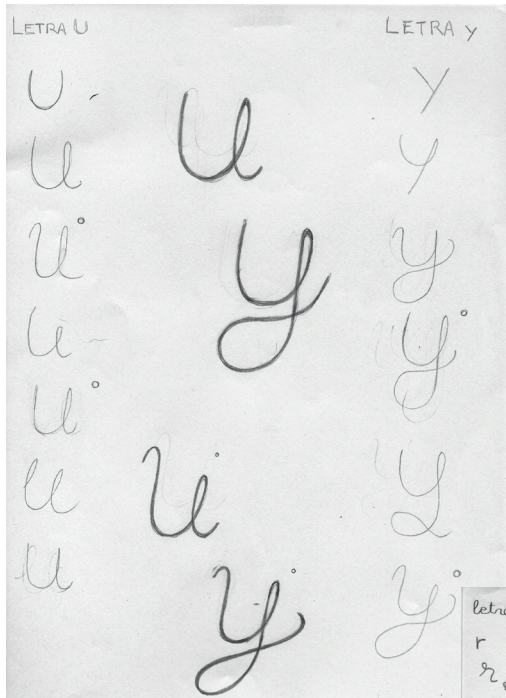 LETRA U
U
U
U
U
U
U
U
U
y
U
y
LETRA y
y
y
y
y
y
y
r
r